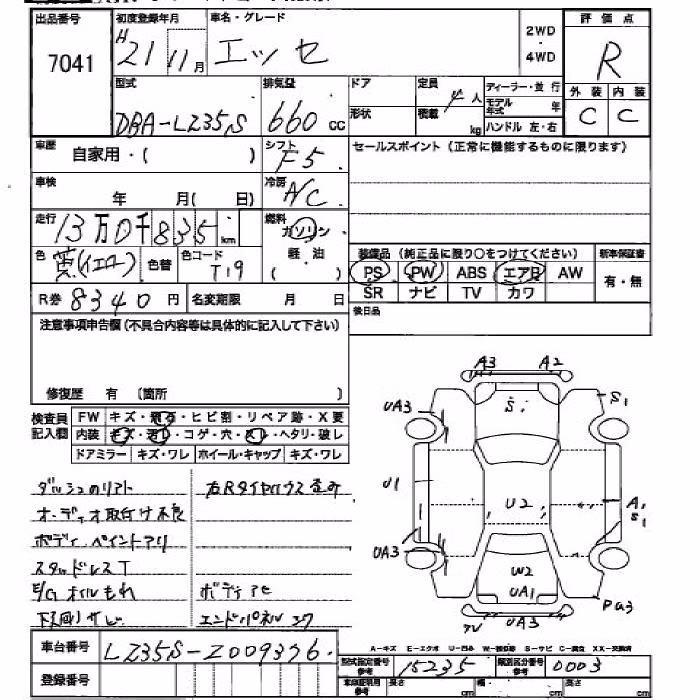 出品番号 初度登録年月 車名・グレード 2WD ・ 4WD 評価点
7041 H21 11月 エッセ R
外装 内装
C C
型式 排気量 ドア 定員 4人 ディーラー・並行
DBA-LZ35S 660cc 形状 積載 kg モデル年式 年
ハンドル 左・右
車歴 自家用・( ) シフト F5 セールスポイント(正常に機能するものに限ります)
車検 年 月( 日) 冷房 A/C
走行 13万0千835km 燃料 ガソリン
軽・油 ( )
色 黄(イエロー) 色替 色コード T19
装備品(純正品に限り○をつけてください) 新車保証書
PS PW ABS エアB AW 有・無
SR ナビ TV カワ
R券 8340円 名変期限 月 日 後日品
注意事項申告欄(不具合内容等は具体的に記入して下さい)
修復歴 有 〔箇所 〕
検査員記入欄 FW キズ・飛石・ヒビ割・リペア跡・X要
内装 キズ・汚れ・コゲ・穴・スレ・ヘタリ・破レ
ドアミラー キズ・ワレ ホイール・キャップ キズ・ワレ
A3 A2
UA3 S. S1
U1 U2 A1 S1
UA3 W2 UA1 PA3
UA3
オーディオ取付け不良
ボディ ペイントアリ
スタッドレスT
E/Gオイルもれ
下廻りサビ
車台番号 LZ35S-Z009376.
登録番号
A-キズ E-エクボ U-凹み W-補修跡 S-サビ C-腐食 XX-交換済
型式指定番号 15235 類別区分番号 0003
車体証明用参考 長さ cm 幅 cm 高さ cm